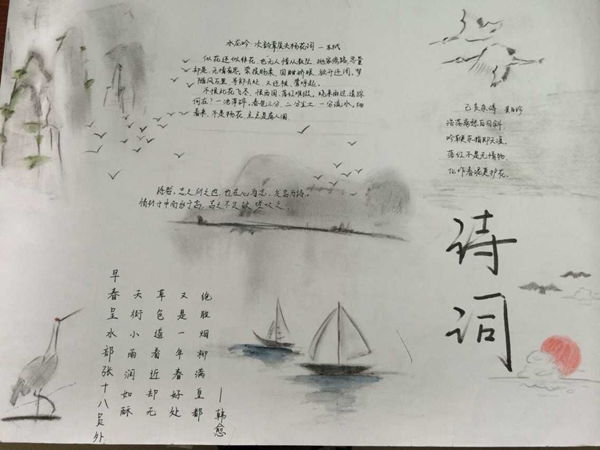 水龙吟·次韵章质夫杨花词 —苏轼
似花还似非花 也无人惜从教坠 抛家傍路,思量
却是,无情有思,萦损柔肠,困酣娇眼,欲开还闭,梦
随风万里,寻郎去处 又还被,莺呼起。
不恨此花飞尽,恨西园,落红难缀,晓来雨过,遗踪
何在?一池萍碎,春色三分,二分尘土 一分流水,细
看来,不是杨花,点点是离人泪。
己亥杂诗 龚自珍
浩荡离愁白日斜
吟鞭东指即天涯
落红不是无情物
化作春泥更护花。
诗者,志之所之也,在心为志,发言为诗,
情动于中而形于言,言之不足故嗟叹之
诗词
早春呈水部张十八员外
天街小雨润如酥
草色遥看近却无
又是一年春好处
绝胜烟柳满皇都
—韩愈